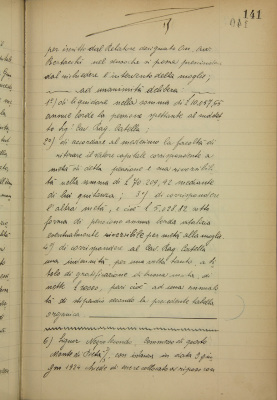 141
per invito dal Relatore designato On. avv.
Bertacchi nel senso che si possa prescindere
dal richiedere l'intervento della moglie;
ad unanimità delibera:
1°) di liquidare nella somma di £ 10.257,65
annue lorde la pensione spettante al suddet
to Sig. Cav. Rag. Catella;
2°) di accordare al medesimo la facoltà di
ritirare il valore capitale corrispondente a
metà di detta pensione e sua reversibili
tà nella somma di £ 70.204,42 mediante
di lui quietanza; 3°) di corrispondere
l'altra metà, e cioè £ 5.128,82 sotto
forma di pensione annua lorda vitalizia
eventualmente riversibile per metà alla moglie.
4°) di corrispondere al Cav. Rag. Catella
una indennità, per una volta tanto, a ti
tolo di gratificazione di buona uscita, di
nette pari cioè ad una annuali
tà di stipendio secondo la precedente tabella
organica.
6) Signor commesso di questo
Monte di Pietà, con istanza in data 2 giu
gno 1924 chiede di essere collocato a riposo con